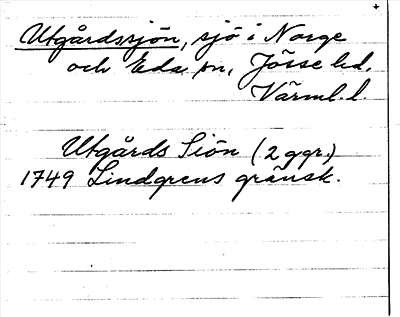 Utgårdssjön, sjö i Norge
och Eda sn, Jösse hd,
Värml. l.
Utgårds Siön (2 ggr.)
1749 Lindgrens gränsk.